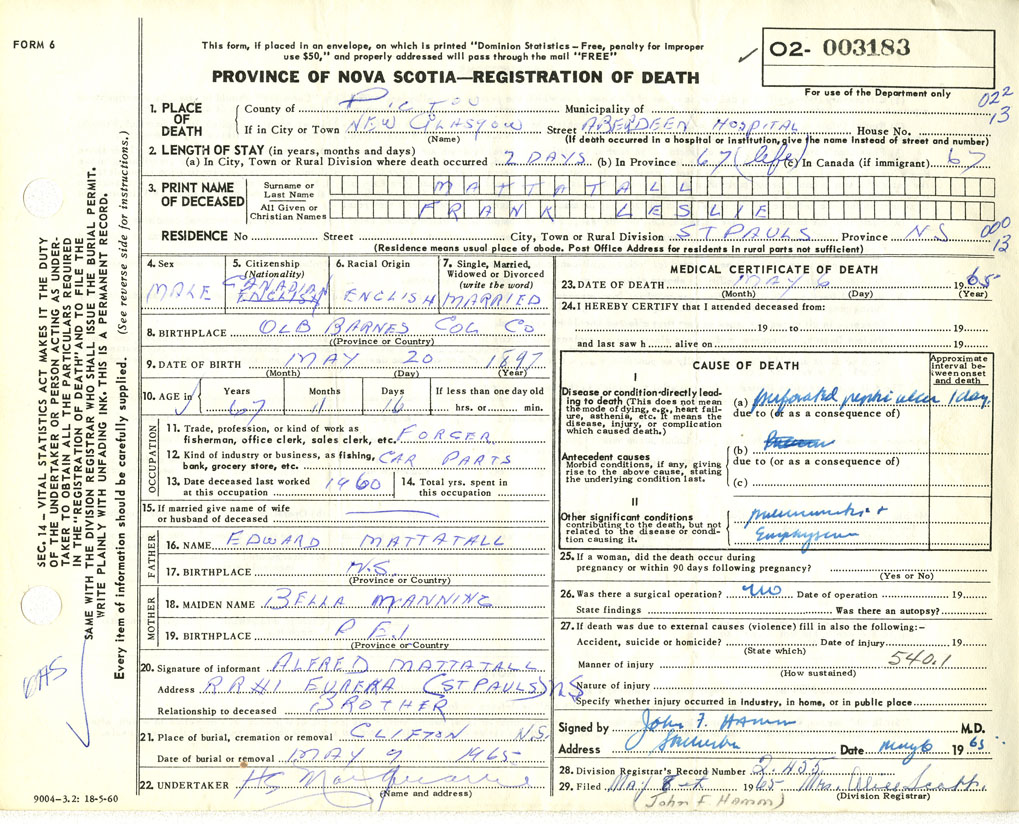 FORM 6
This form, if placed in an envelope, on which is printed "Dominion Statistics – Free, penalty for improper
use $50," and properly addressed will pass through the mail "FREE"
PROVINCE OF NOVA SCOTIA—REGISTRATION OF DEATH
02- 003183
For use of the Department only
022
13
1. PLACE OF DEATH
County of PICTOU Municipality of
If in City or Town NEW GLASGOW Street ABERDEEN HOSPITAL House No.
(Name) (If death occurred in a hospital or institution, give the name instead of street and number)
2. LENGTH OF STAY (in years, months and days)
(a) In City, Town or Rural Division where death occurred 2 DAYS (b) In Province 67 (life) (c) In Canada (if immigrant) 67
3. PRINT NAME OF DECEASED
Surname or Last Name MATTATALL
All Given or Christian Names FRANK LESLIE
RESIDENCE No Street City, Town or Rural Division ST PAULS Province NS
(Residence means usual place of abode. Post Office Address for residents in rural parts not sufficient)
000
13
4. Sex MALE
5. Citizenship (Nationality) CANADIAN ENGLISH
6. Racial Origin ENGLISH
7. Single, Married, Widowed or Divorced (write the word) MARRIED
8. BIRTHPLACE OLB BARNES COL CO
(Province or Country)
9. DATE OF BIRTH MAY 20 1897
(Month) (Day) (Year)
10. AGE in Years Months Days If less than one day old
67 11 16 hrs. or min.
OCCUPATION
11. Trade, profession, or kind of work as
fisherman, office clerk, sales clerk, etc. FORGER
12. Kind of industry or business, as fishing,
bank, grocery store, etc. CAR PARTS
13. Date deceased last worked at this occupation 1960
14. Total yrs. spent in this occupation
15. If married give name of wife
or husband of deceased
FATHER
16. NAME EDWARD MATTATALL
17. BIRTHPLACE N.S.
(Province or Country)
MOTHER
18. MAIDEN NAME BELLA MANNING
19. BIRTHPLACE P E I
(Province or Country)
20. Signature of informant ALFRED MATTATALL
Address RR#1 EUREKA (ST PAULS) NS
Relationship to deceased BROTHER
21. Place of burial, cremation or removal CLIFTON N.S.
Date of burial or removal MAY 9 1965
22. UNDERTAKER
(Name and address)
9004-3.2: 18-5-60
MEDICAL CERTIFICATE OF DEATH
23. DATE OF DEATH MAY 6 1965
(Month) (Day) (Year)
24. I HEREBY CERTIFY that I attended deceased from:
19 to 19
and last saw h alive on 19
CAUSE OF DEATH
Approximate interval between onset and death
I
Disease or condition directly leading to death (This does not mean the mode of dying, e.g., heart failure, asthenia, etc. It means the disease, injury, or complication which caused death.)
(a) perforated peptic ulcer 1 day
due to (or as a consequence of)
Antecedent causes
Morbid conditions, if any, giving rise to the above cause, stating the underlying condition last.
(b)
due to (or as a consequence of)
(c)
II
Other significant conditions
contributing to the death, but not related to the disease or condition causing it.
Emphysema
25. If a woman, did the death occur during
pregnancy or within 90 days following pregnancy?
(Yes or No)
26. Was there a surgical operation? no Date of operation 19
State findings Was there an autopsy?
27. If death was due to external causes (violence) fill in also the following:-
Accident, suicide or homicide? Date of injury 19
(State which)
Manner of injury 540.1
(How sustained)
Nature of injury
Specify whether injury occurred in industry, in home, or in public place
Signed by John F. Hamm M.D.
Address Date May 6 1965
28. Division Registrar's Record Number 2.435
29. Filed MAY 8th 1965 Mrs. Alice Scott
(John F Hamm) (Division Registrar)
SEC. 14 – VITAL STATISTICS ACT MAKES IT THE DUTY
OF THE UNDERTAKER OR PERSON ACTING AS UNDER-
TAKER TO OBTAIN ALL THE PARTICULARS REQUIRED
IN THE "REGISTRATION OF DEATH" AND TO FILE THE
SAME WITH THE DIVISION REGISTRAR WHO SHALL ISSUE THE BURIAL PERMIT.
WRITE PLAINLY WITH UNFADING INK. THIS IS A PERMANENT RECORD.
Every item of information should be carefully supplied. (See reverse side for instructions.)